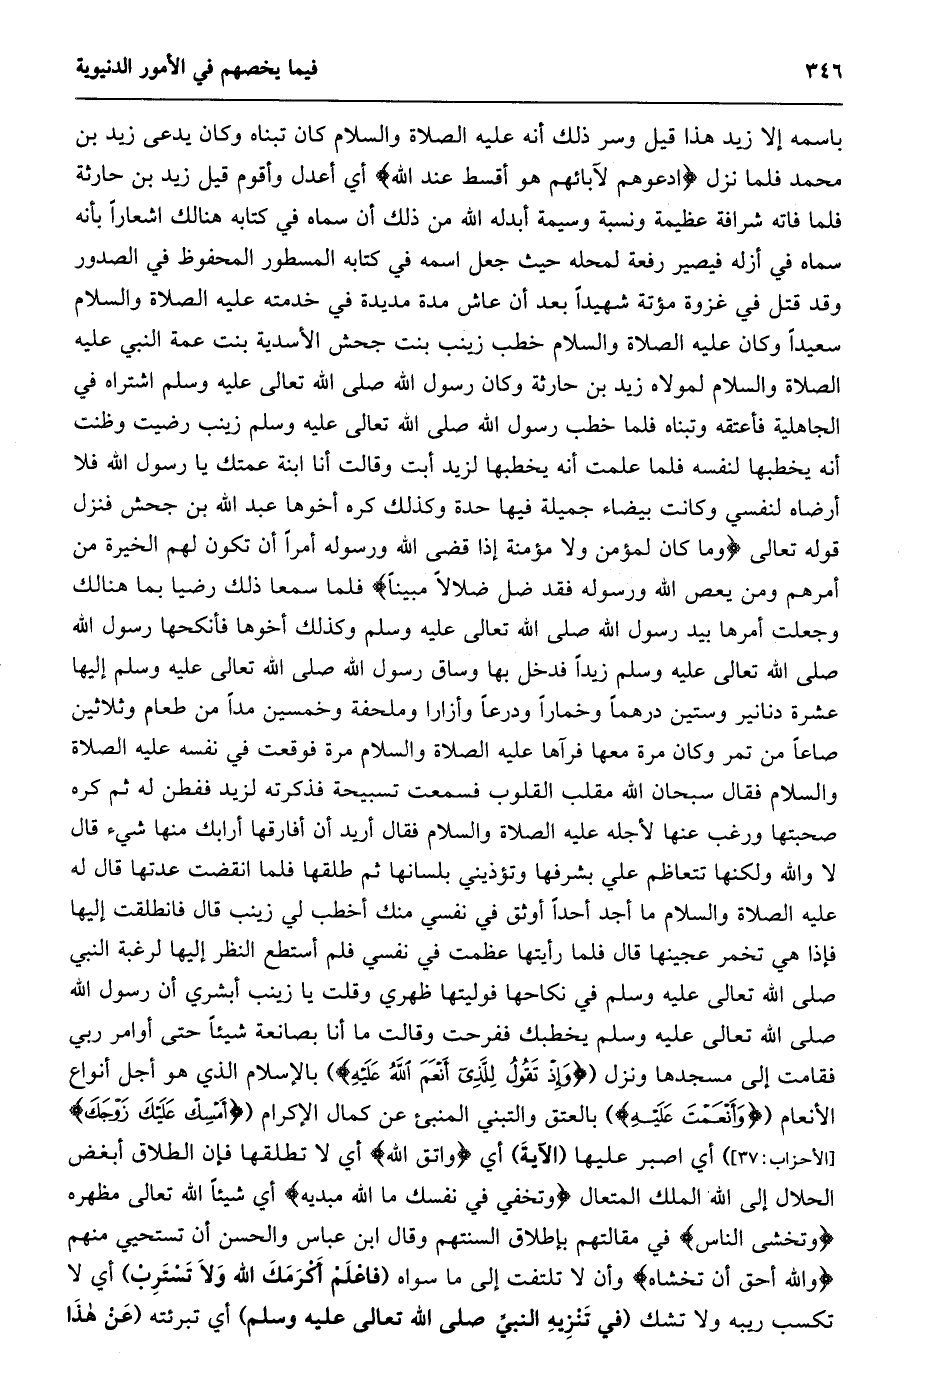 ٣٤٦ فيما يخصهم في الأمور الدنيوية
باسمه إلا زيد هذا قيل وسر ذلك أنه عليه الصلاة والسلام كان تبناه وكان يدعى زيد بن
محمد فلما نزل ﴿ادعوهم لآبائهم هو أقسط عند الله﴾ أي أعدل وأقوم قيل زيد بن حارثة
فلما فاته شرافة عظيمة ونسبة وسيمة أبدله الله من ذلك أن سماه في كتابه هنالك اشعاراً بأنه
سماه في أزله فيصير رفعة لمحله حيث جعل اسمه في كتابه المسطور المحفوظ في الصدور
وقد قتل في غزوة مؤتة شهيداً بعد أن عاش مدة مديدة في خدمته عليه الصلاة والسلام
سعيداً وكان عليه الصلاة والسلام خطب زينب بنت جحش الأسدية بنت عمة النبي عليه
الصلاة والسلام لمولاه زيد بن حارثة وكان رسول الله صلى الله تعالى عليه وسلم اشتراه في
الجاهلية فأعتقه وتبناه فلما خطب رسول الله صلى الله تعالى عليه وسلم زينب رضيت وظنت
أنه يخطبها لنفسه فلما علمت أنه يخطبها لزيد أبت وقالت أنا ابنة عمتك يا رسول الله فلا
أرضاه لنفسي وكانت بيضاء جميلة فيها حدة وكذلك كره أخوها عبد الله بن جحش فنزل
قوله تعالى ﴿وما كان لمؤمن ولا مؤمنة إذا قضى الله ورسوله أمراً أن تكون لهم الخيرة من
أمرهم ومن يعص الله ورسوله فقد ضل ضلالاً مبيناً﴾ فلما سمعا ذلك رضيا بما هنالك
وجعلت أمرها بيد رسول الله صلى الله تعالى عليه وسلم وكذلك أخوها فأنكحها رسول الله
صلى الله تعالى عليه وسلم زيداً فدخل بها وساق رسول الله صلى الله تعالى عليه وسلم إليها
عشرة دنانير وستين درهماً وخماراً ودرعاً وأزارا وملحفة وخمسين مداً من طعام وثلاثين
صاعاً من تمر وكان مرة معها فرآها عليه الصلاة والسلام مرة فوقعت في نفسه عليه الصلاة
والسلام فقال سبحان الله مقلب القلوب فسمعت تسبيحة فذكرته لزيد ففطن له ثم كره
صحبتها ورغب عنها لأجله عليه الصلاة والسلام فقال أريد أن أفارقها أرابك منها شيء قال
لا والله ولكنها تتعاظم علي بشرفها وتؤذيني بلسانها ثم طلقها فلما انقضت عدتها قال له
عليه الصلاة والسلام ما أجد أحداً أوثق في نفسي منك أخطب لي زينب قال فانطلقت إليها
فإذا هي تخمر عجينها قال فلما رأيتها عظمت في نفسي فلم أستطع النظر إليها لرغبة النبي
صلى الله تعالى عليه وسلم في نكاحها فوليتها ظهري وقلت يا زينب أبشري أن رسول الله
صلى الله تعالى عليه وسلم يخطبك ففرحت وقالت ما أنا بصانعة شيئاً حتى أوامر ربي
فقامت إلى مسجدها ونزل (﴿وَإِذْ تَقُولُ لِلَّذِىٓ أَنْعَمَ ٱللَّهُ عَلَيْهِ﴾) بالإسلام الذي هو أجل أنواع
الأنعام (﴿وَأَنْعَمْتَ عَلَيْهِ﴾) بالعتق والتبني المنبئ عن كمال الإكرام (﴿أَمْسِكْ عَلَيْكَ زَوْجَكَ﴾
[الأحزاب: ٣٧]) أي اصبر عليها (الآيةَ) أي ﴿واتق الله﴾ أي لا تطلقها فإن الطلاق أبغض
الحلال إلى الله الملك المتعال ﴿وتخفي في نفسك ما الله مبديه﴾ أي شيئاً الله تعالى مظهره
﴿وتخشى الناس﴾ في مقالتهم بإطلاق السنتهم وقال ابن عباس والحسن أن تستحيي منهم
﴿والله أحق أن تخشاه﴾ وأن لا تلتفت إلى ما سواه (فَاعْلَمْ أَكْرَمَكَ الله وَلاَ تَسْتَرِبْ) أي لا
تكسب ريبه ولا تشك (في تَنْزِيهِ النبيِّ صلى الله تعالى عليه وسلم) أي تبرئته (عَنْ هٰذَا